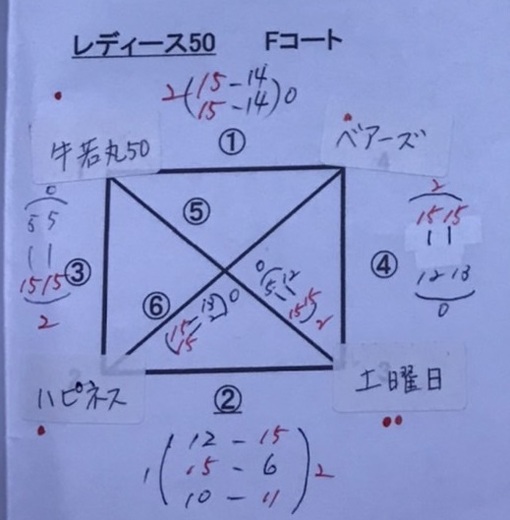 レディース50 Fコート
2(15-14
15-14)0
①
牛若丸50
ベアーズ
0
5 5
| |
15 15
2
③
⑤
2
15 15
| |
12 13
0
④
⑥
0
5 12
15 15
2
ハピネス
土曜日
②
1(12 - 15
15 - 6
10 - 11)2